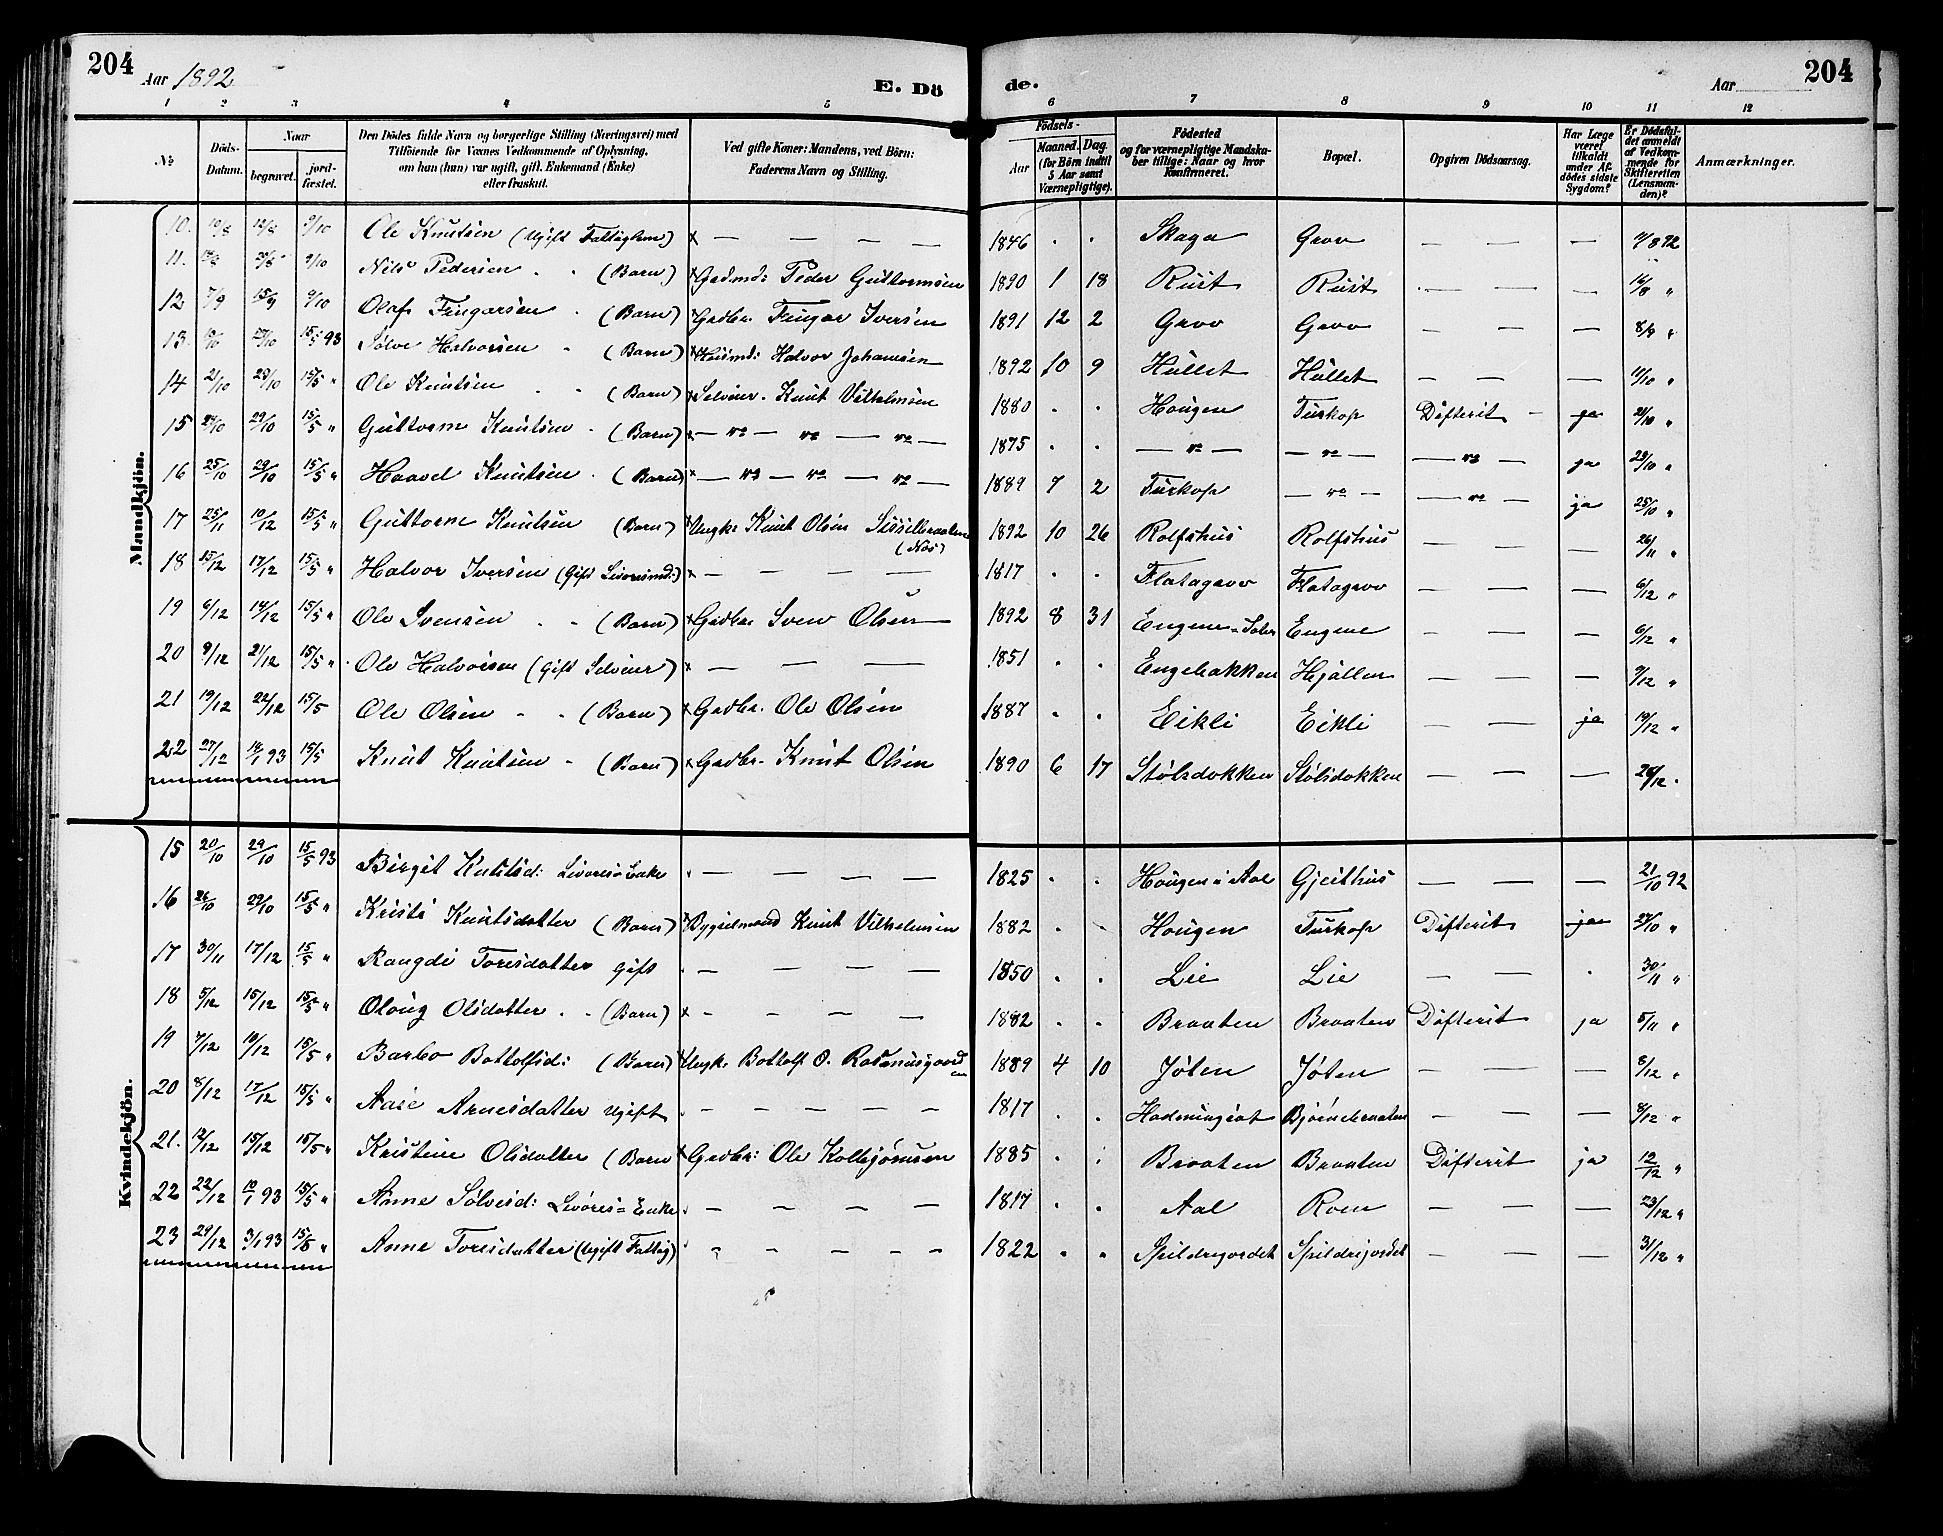 204
Aar 1892
E. Dö
de.
Aar
204
1 2 3 4 5 6 7 8 9 10 11 12
No
Döds-Datum.
Naar
begravet.
jord-fæstet.
Den Dödes fulde Navn og borgerlige Stilling (Næringsvei) med
Tilföiende for Voxnes Vedkommende af Oplysning,
om han (hun) var ugift, gift, Enkemand (Enke)
eller fraskilt.
Ved gifte Koner: Mandens, ved Börn:
Faderens Navn og Stilling.
Födsels-
Aar
Maaned. Dag
(for Börn indtil
5 Aar samt
Værnepligtige).
Födested
og for værnepligtige Mandska-
ber tillige: Naar og hvor
Konfirmeret.
Bopæl.
Opgiven Dödsaarsag.
Har Læge
været
tilkaldt
under Af-
dödes sidste
Sygdom?
Er Dödsfal-
det anmeldt
af Vedkom-
mende for
Skifteretten
(Lensman-
den)?
Anmærkninger.
Mandkjön.
10. 10/8 12/8 9/10 Ole Knutsen (Ugift Fattiglem) x — — — — 1846 . . Skaga Grov — — — 11/8 92
11. 9/10 Nils Pedersen . . (Barn) Gaardmd: Peder Guttormsen 1890 1 18 Rust Rust — — — 16/8 "
12 7/9 15/9 9/10 Olaf Fingarsen . (Barn) Gaardbr. Fingar Iversen 1891 12 2 Grov Grov — — — 8/9 "
13. 15/5 93 Sölve Halvorsen . (Barn) Husmd: Halvor Johansen 1892 10 9 Hullet Hullet — — — 11/10 "
14 21/10 29/10 15/5 " Ole Knutsen . . (Barn) x Selveier. Knut Vilhelmsen 1880 . . Hougen Turkop Difterit — ja 21/10 "
15 24/10 29/10 15/5 " Guttorm Knutsen . (Barn) x — " — " — " — 1875 . . — " — — " — — " — ja 29/10 "
16 25/10 29/10 15/5 " Haavel Knutsen . (Barn) x — " — " — " — 1889 7 2 Turkop — " — — " — ja 25/10 "
17 25/11 10/12 15/5 " Guttorm Knutsen (Barn) x Ungkr Knut Olsen Sisselbraaten (Nes) 1892 10 26 Rolfshus Rolfshus — — — 26/11 "
18 15/12 17/12 15/5 " Halvor Iversen (Gift Livöresmd:) x — — — — 1817 . . Flatagrov Flatagrov — — — 6/12 "
19 6/12 14/12 15/5 " Ole Svensen . . (Barn) x Gaardbr Sven Olsen 1892 8 31 Engene Engene — — — 6/12 "
20 9/12 21/12 15/5 " Ole Halvorsen (Gift Selveier) x — — — 1851 . . Engebakken Hjallen — — — 9/12 "
21 19/12 22/12 15/5 Ole Olsen . . (Barn) x Gaardbr. Ole Olsen 1887 . . Eikli Eikli — — ja 19/12 "
22 27/12 14/1 93 15/5 Knut Knutsen . (Barn) x Gaardbr. Knut Olsen 1890 6 17 Stölsdokken Stölsdokken — — — 28/12 .
Kvindekjön.
15 20/10 29/10 15/5 93 Birgit Knutsd: Livöres Enke — — — — 1825 . . Hougen i Aal Gjeithus — — — 21/10 92
16 26/10 29/10 15/5 " Kristi Knutsdatter (Barn) x Bygselmand Knut Vilhelmsen 1882 . . Hougen Turkop Difterit ja 27/10 "
17 30/11 17/12 15/5 " Rangdi Toresdatter gift . — — — — 1850 . . Lie Lie — — . 30/11 "
18 5/12 15/12 15/5 " Oloug Olsdatter . . (Barn) x — — — — 1882 . . Braaten Braaten Difterit ja 5/11 "
19 7/12 10/12 15/5 " Barbo Bottolfsd: (Barn) x Ungk. Bottolf O. Rasmusgaarden 1889 4 10 Jöten Jöten — — — 8/12 "
20 8/12 17/12 15/5 " Aase Arnesdatter ugift . — — — — — 1817 . . Bjørnebraaten — — — 8/12 "
21. 12/12 15/12 15/5 " Kristine Olsdatter (Barn x Gaardbr: Ole Kolbjörnsen 1885 . . Braaten Braaten Difterit ja 12/12 "
22 22/12 10/1 93 15/5 " Anne Sölvesd: Livöres = Enke . — — — — 1817 . . Aal Roen — — — 23/12 "
23 29/12 3/1 93 15/5 " Anne Toresdatter (Ugift Fattig) " — — — — 1822 . . Spildrejordet Spildrejordet — — — 31/12 "